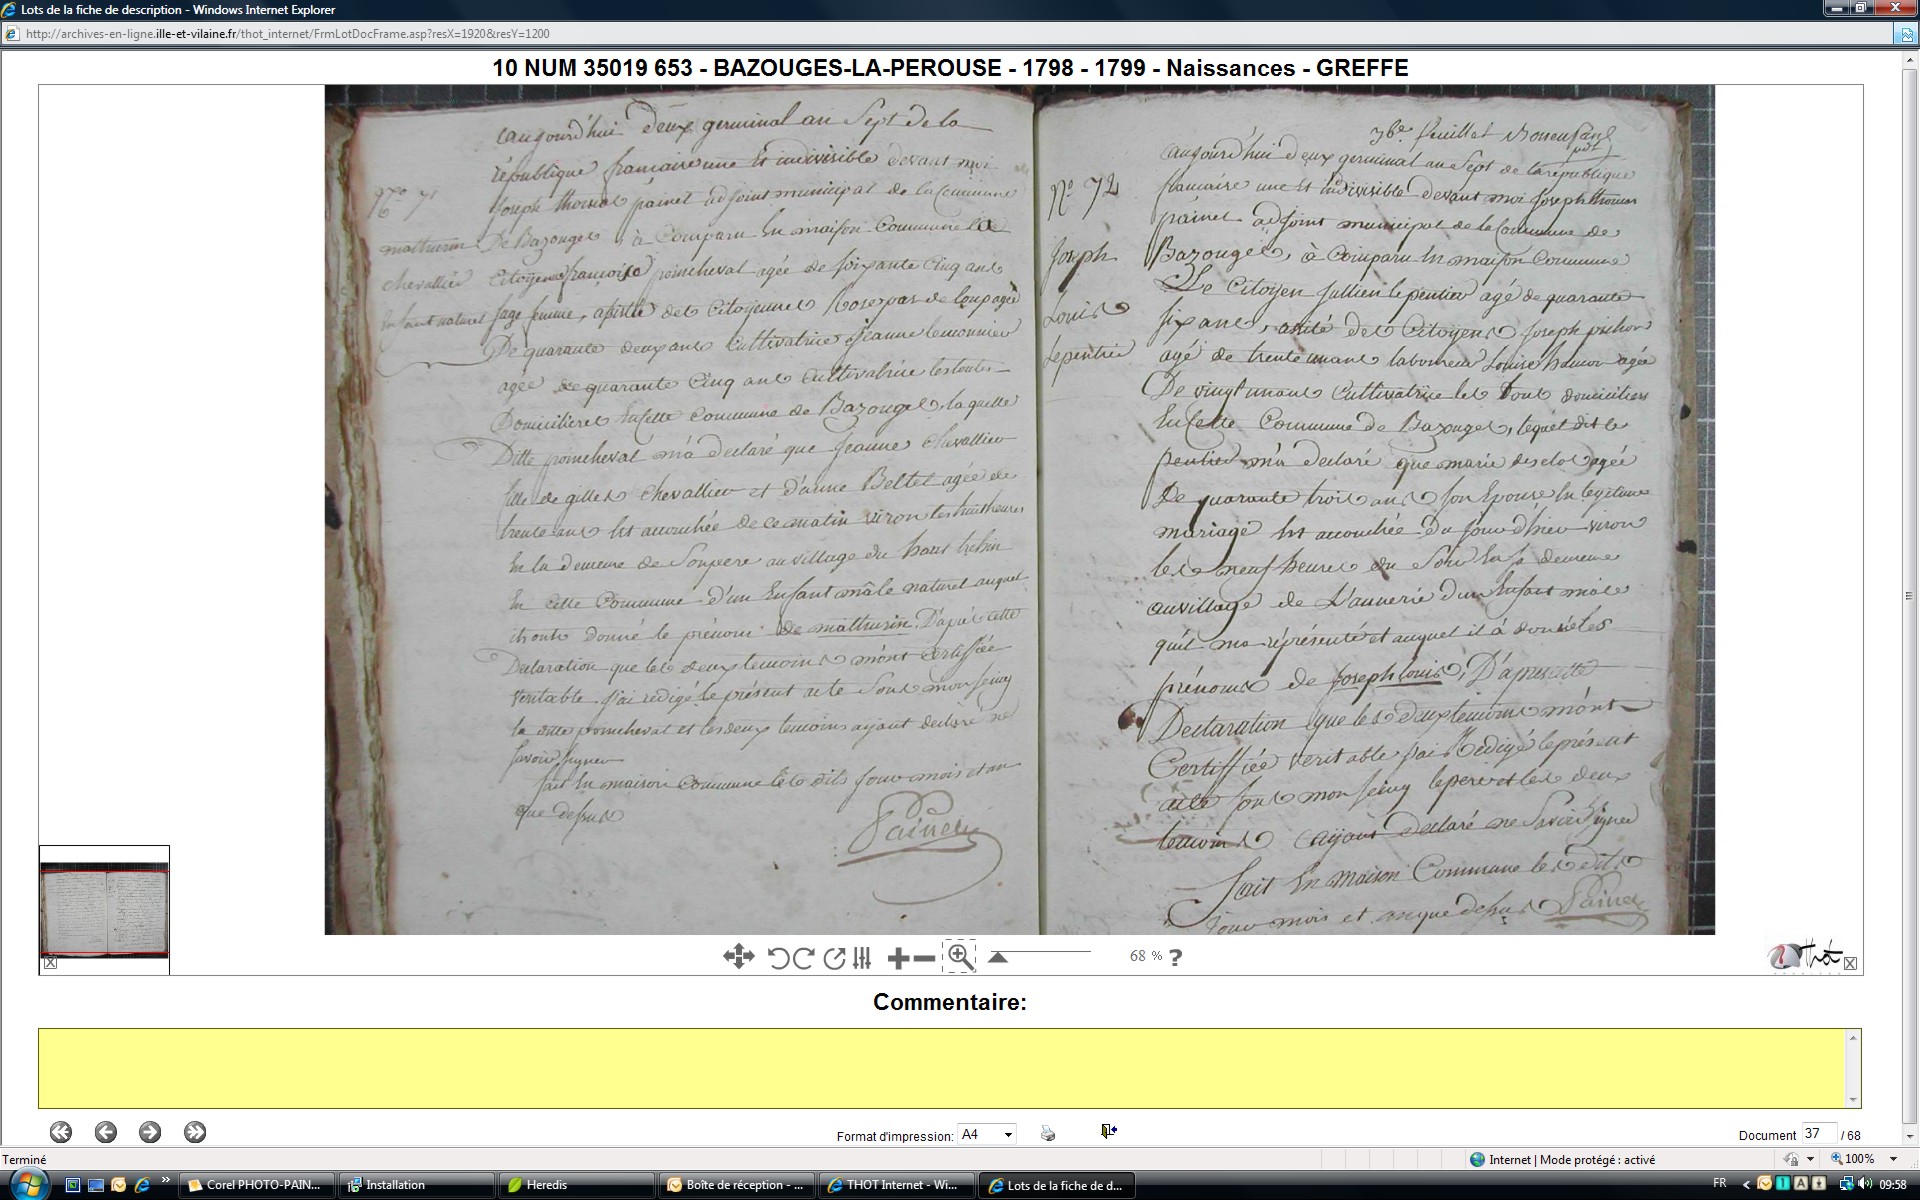 Lots de la fiche de description - Windows Internet Explorer
http://archives-en-ligne.ille-et-vilaine.fr/thot_internet/FrmLotDocFrame.asp?resX=1920&resY=1200
10 NUM 35019 653 - BAZOUGES-LA-PEROUSE - 1798 - 1799 - Naissances - GREFFE
aujourd'hui deux germinal an Sept de la
république francaise une et indivisible devant moi
Joseph thomas painel adjoint municipal de la Commune
De Bazouges à Comparu En maison Commune la
Citoyenne francoise poincheval agée de soixante Cinq ans
sage femme, assisté des Citoyennes Rose pas de loup agée
De quarante deux ans Cultivatrice & jeanne lemonnier
agée de quarante Cinq ans Cultivatrice les toutes
Domiciliées En Cette Commune de Bazouges, laquelle
Ditte poincheval m'a declaré que jeanne Chevallier
fille de gilles Chevallier et d'anne Beltel agée de
trente ans Est accouchée de ce matin viron les huit heures
En la demeure de Son pere au village du haut
En cette Commune d'un Enfant mâle naturel auquel
ils ont donné le prénom de mathurin. D'après cette
Declaration que les deux temoins m'ont Certiffiée
veritable j'ai rédigé le présent acte Sous mon seing
la ditte poincheval et les deux temoins ayant declaré ne
Savoir Signer
fait En maison Commune les dits jour mois et an
que dessus
Painel
No 71
mathurin
chevallier
Enfant naturel
feuillet
No 72
Joseph
Louis
Lepentier
aujourd'hui deux germinal an Sept de la république
francaise une et indivisible devant moi Joseph thomas
painel adjoint municipal de la Commune de
Bazouges, à Comparu En maison Commune
Le Citoyen Jullien lepentier agé de quarante
six ans, assisté des Citoyens Joseph pichon
agé de trente un ans laboureur Louise hamon agée
De vingt un ans Cultivatrice les tous domiciliers
En Cette Commune de Bazouges, lequel dit le
pentier m'a declaré que marie desclos agée
De quarante trois ans Son Epouse En legitime
mariage Est accouchée Du jour d'hier viron
les neuf heures du Soir En Sa demeure
au village de L'aunerie d'un Enfant male
qu'il m'a réprésenté et auquel il à donné les
prénoms de Joseph Louis, D'après cette
Declaration que les deux temoins m'ont
Certiffiée veritable j'ai Redigé le présent
acte sous mon seing le pere et les deux
temoins ayant declaré ne Savoir Signer
fait En maison Commune les dits
Jour mois et an que dessus Painel
68 % ?
Thot
Commentaire:
Format d'impression: A4
Document 37 / 68
Terminé
Internet | Mode protégé : activé
100%
Corel PHOTO-PAIN...
Installation
Heredis
Boîte de réception - ...
THOT Internet - Wi...
Lots de la fiche de d...
FR
09:58